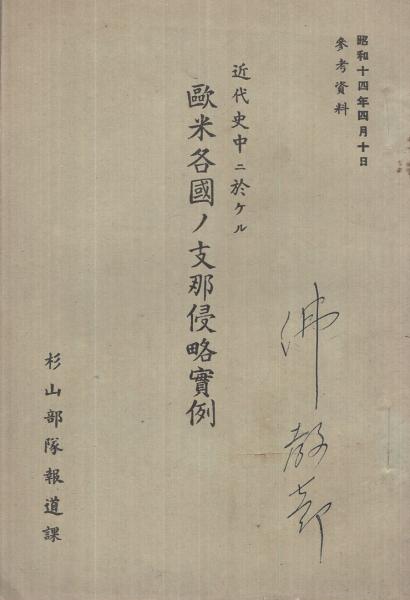 昭和十四年四月十日
參考資料
近代史中ニ於ケル
歐米各國ノ支那侵略實例
杉山部隊報道課
佛教部